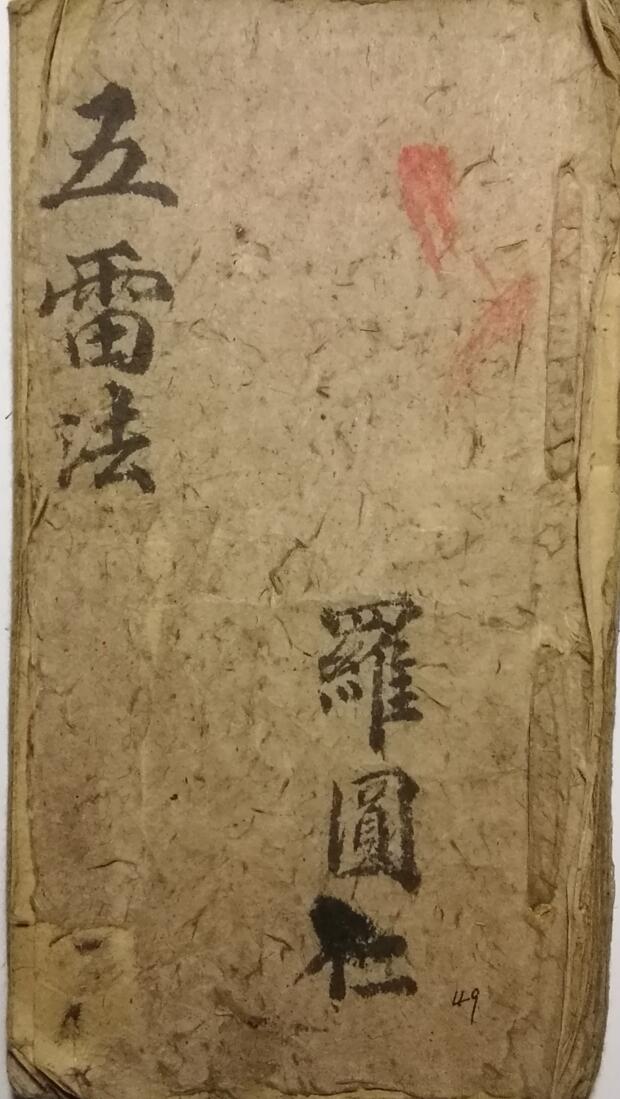 五雷法
羅圓仁
49